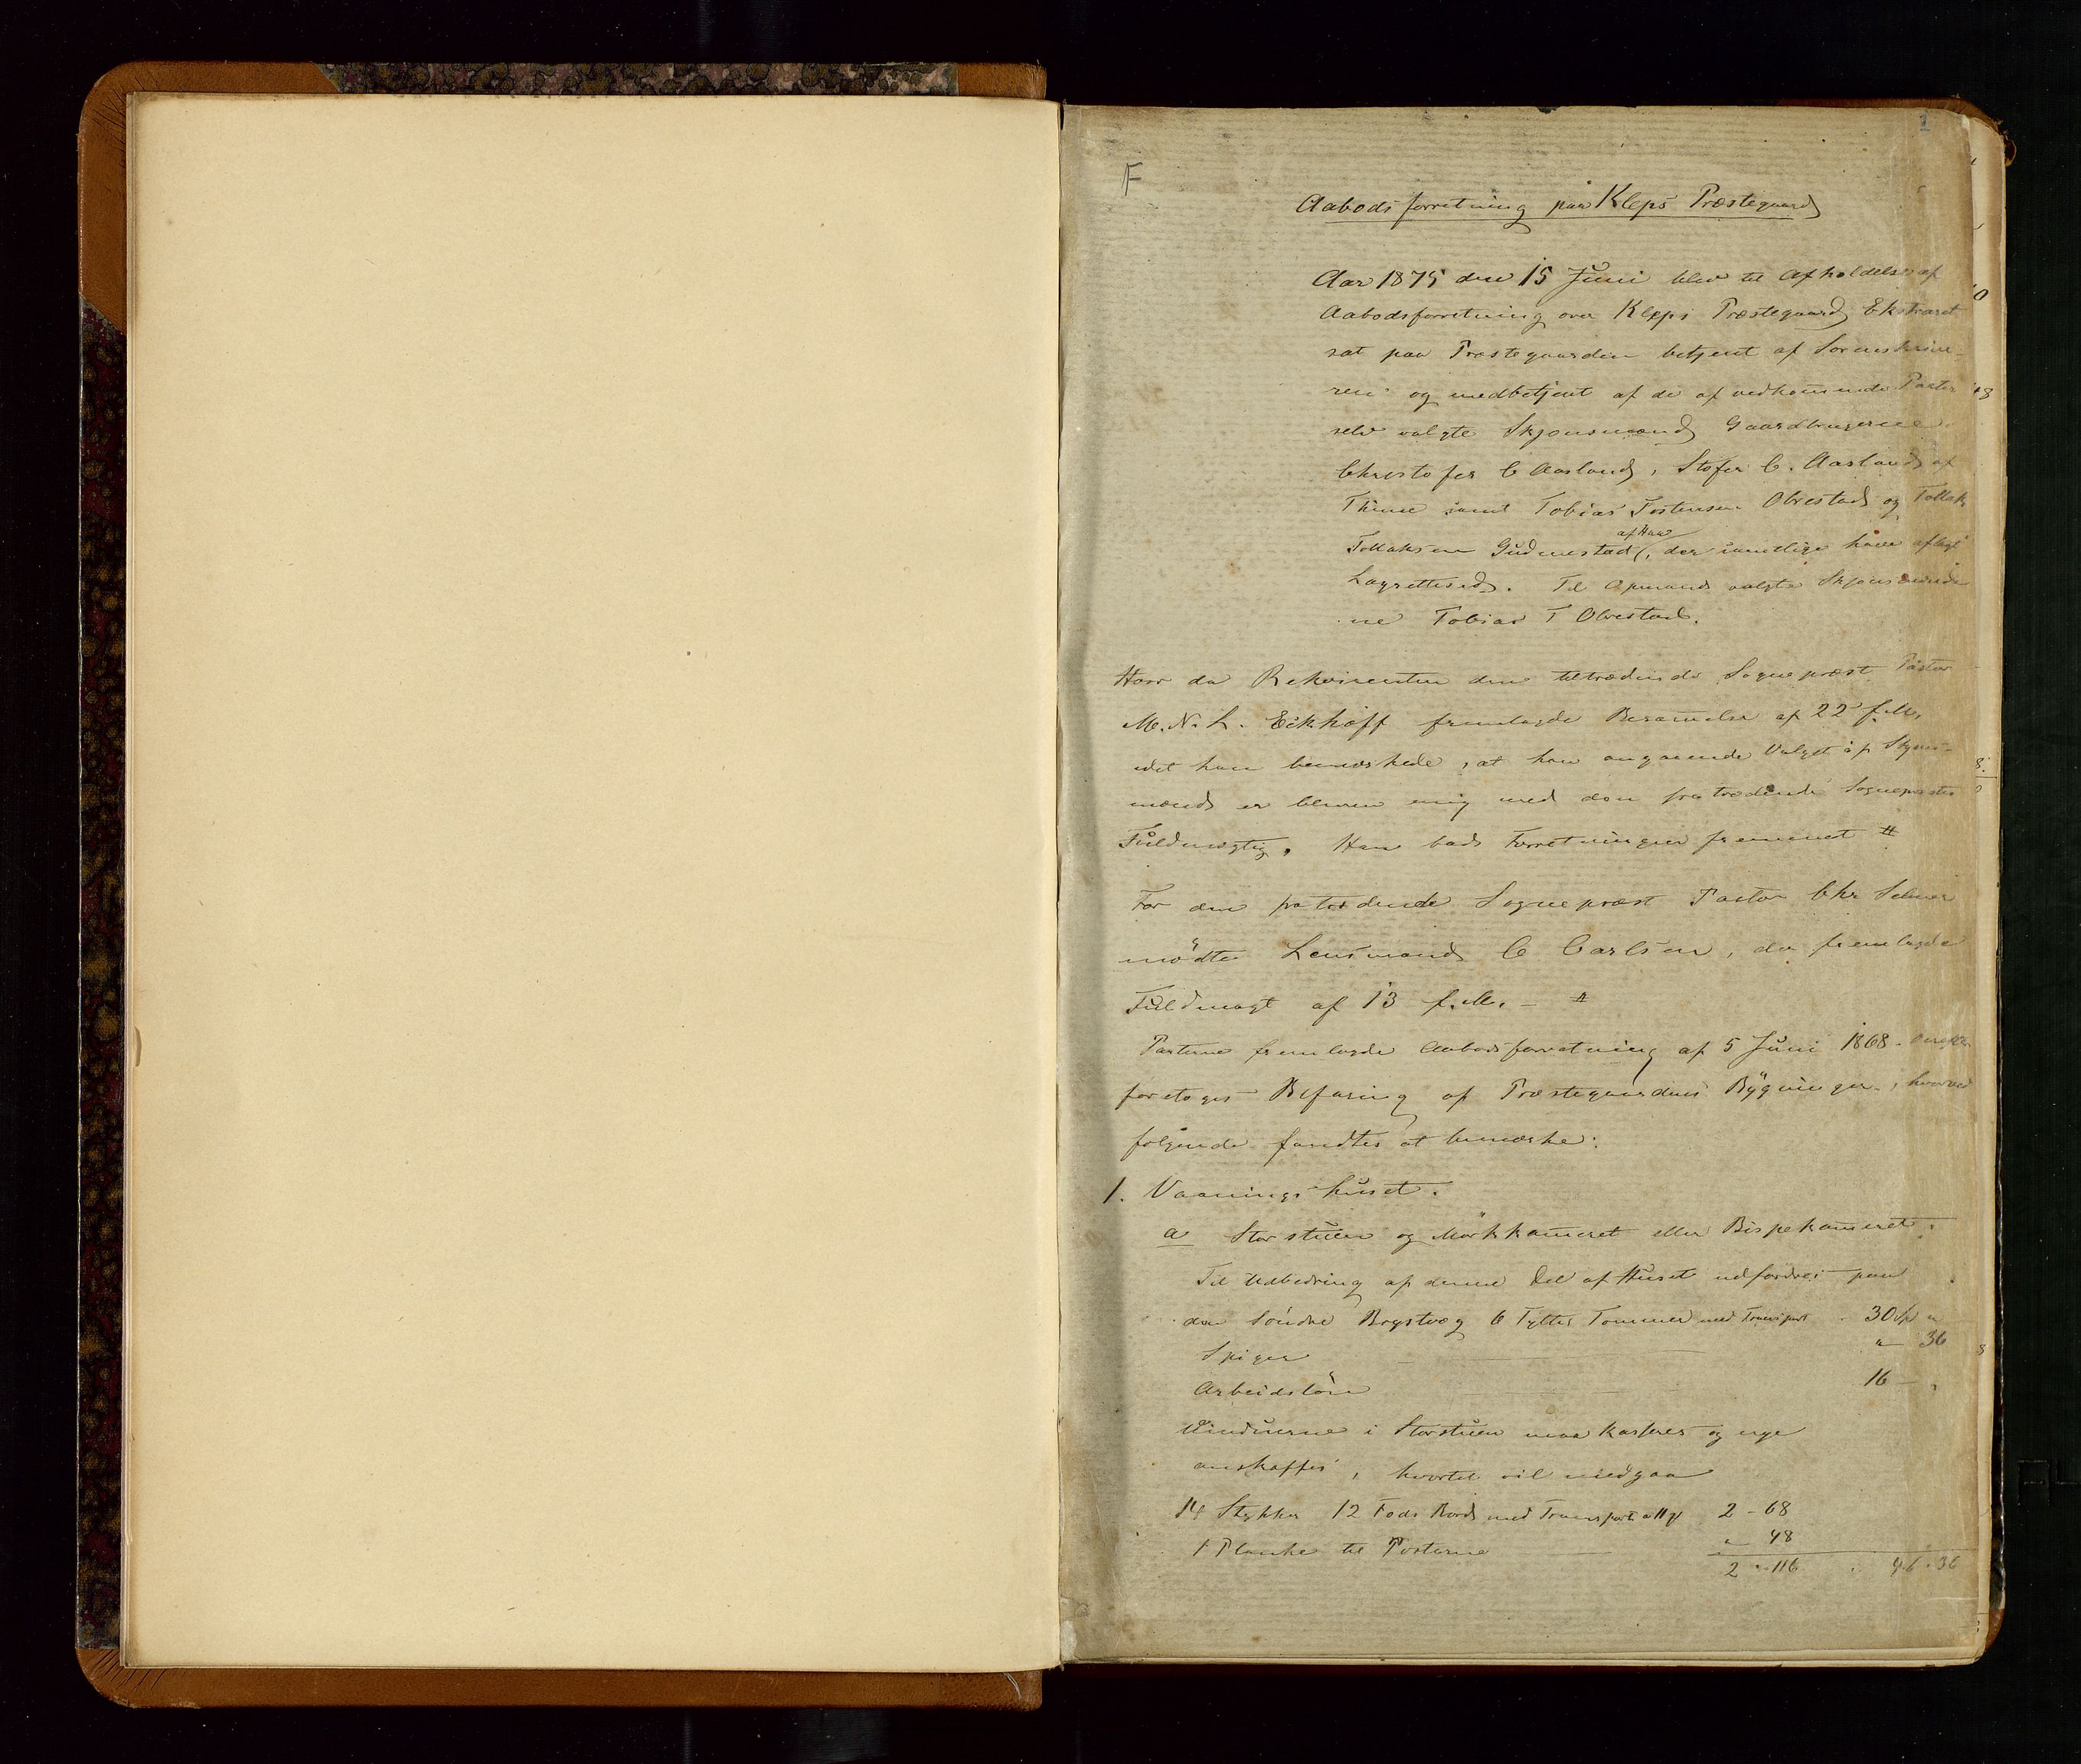 1
F
Aabodsforretning paa Kleps Præstegaard
Aar 1875 den 15 Juni blev til Afholdelse af
Aabodsforretning over Kleps Præstegaard Ekstraret
sat paa Præstegaarden betjent af Sorenskrive-
ren og medbetjent af de af vedkommende Parter
selv valgte Skjønsmænd Gaardbrugerne
Christofer C Aasland, Stofer C. Aarsland af
Thime samt Tobias Tostensen Obrestad og Tollak
Tollaksen Gudmestad af Haa, der samtlige have aflagt
Lagrettesed. Til Opmand valgte Skjønsmænde
ne Tobias T Obrestad.
Hvor da Rekvirenten den tiltrædende Sognepræst Pastor
M. N. L. Eckhoff fremlagde Berammelse af 22 f. M.,
idet han bemærkede, at han angaaende Valget af Skjøns-
mænd er bleven enig med den fratrædende Sognepræstes
Fuldmægtig. Han bad Forretningen fremmet #
For den fratrædende Sognepræst Pastor Chr Selmer
mødte Lensmand C Carlsen, der fremlagde
Fuldmagt af 13 f. M. - #
Parterne fremlagde Aabodsforretning af 5 Juni 1868.
foretoges Befaring af Præstegaardens Bygninger, hvorved
følgende fandtes at bemærke:
1. Vaaningshuset.
a Storstuen og Mørkkammeret eller Bispekammeret.
Til Udbedring af denne Del af Huset udfordres paa
den søndre Brystvæg 6 Tylter Tømmer med Transport 30 Sp "
Spiger " 36
Arbeidsløn 16 -
Vinduerne i Storstuen maa kasseres og nye
anskaffes, hvortil vil medgaa
14 Stykker 12 Fods Bord med Transport a 2 - 68
1 Planke til Posterne " 48
2 - 116 46 - 36